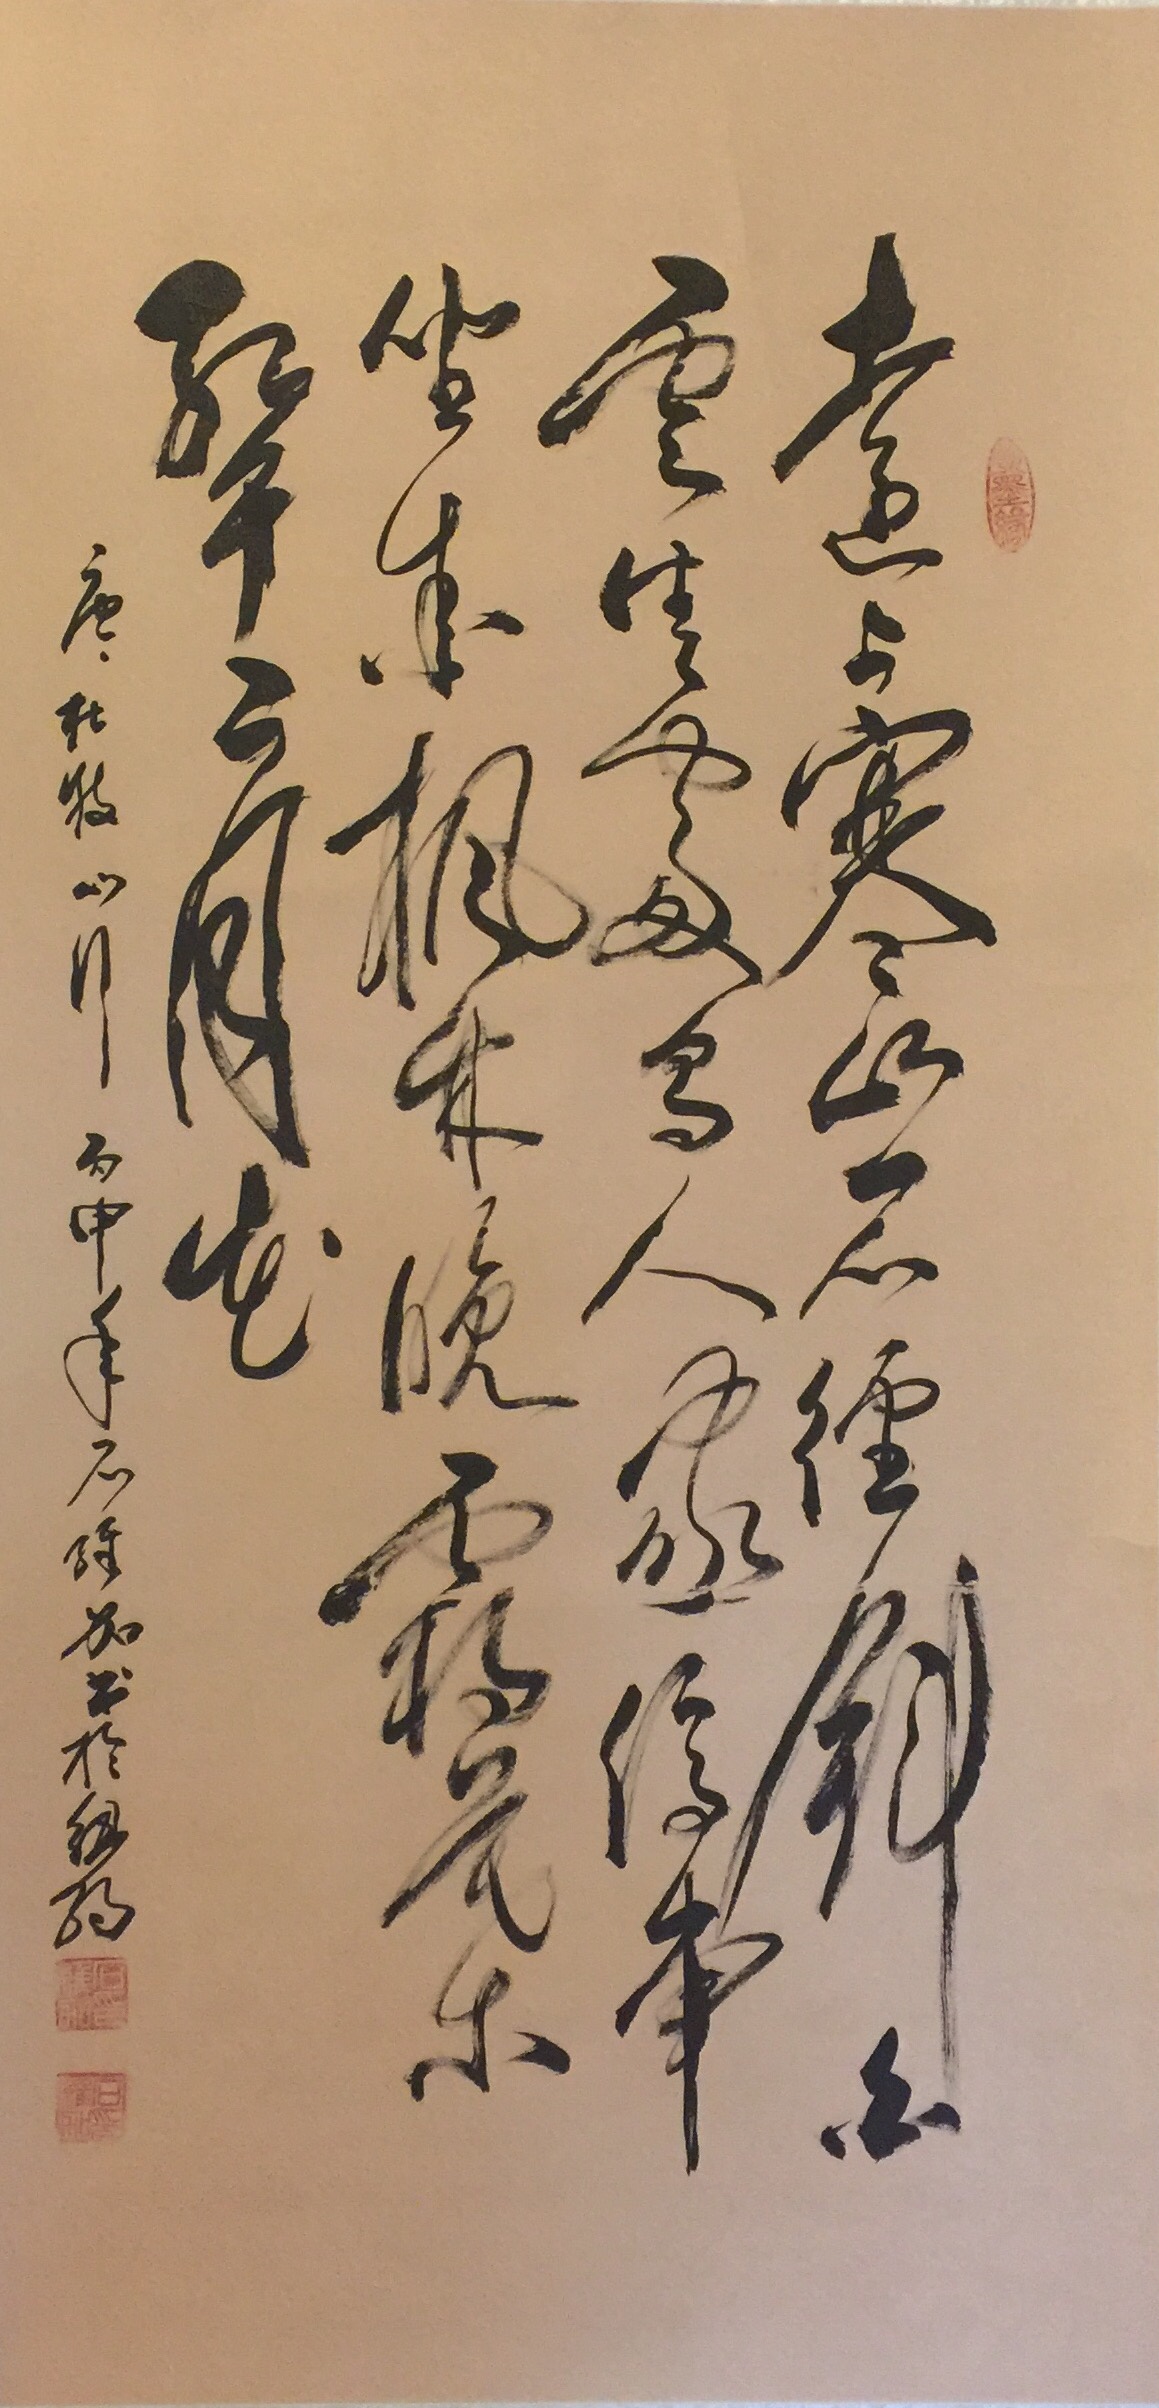 遠上寒山石徑斜白
雲生處有人家停車
坐愛楓林晚霜葉
紅于二月花
唐杜牧山行 丙申年石維加書於紐約
墨緣